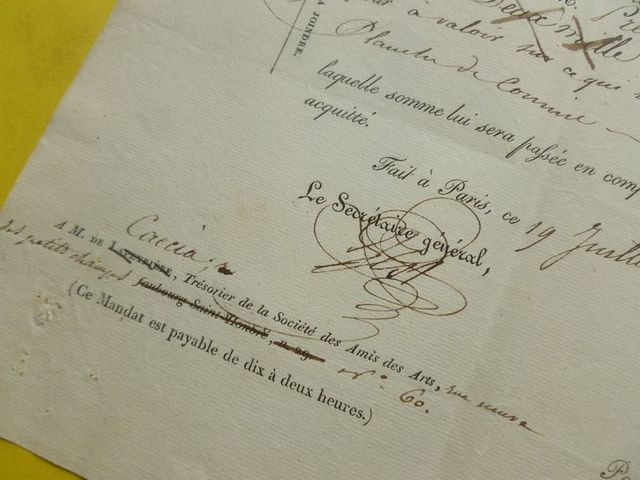 A JOINDRE.
Deux mille
pour à valoir sur ce qui
Planche de
laquelle somme lui sera passée en comp
acquitté.
Fait à Paris, ce 19 Juillet
Le Secrétaire général,
Caccia,
A M. DE LAPEYRIÈRE, Trésorier de la Société des Amis des Arts, rue neuve
des petits champs faubourg Saint-Honoré, n. 29. n.° 60.
(Ce Mandat est payable de dix à deux heures.)